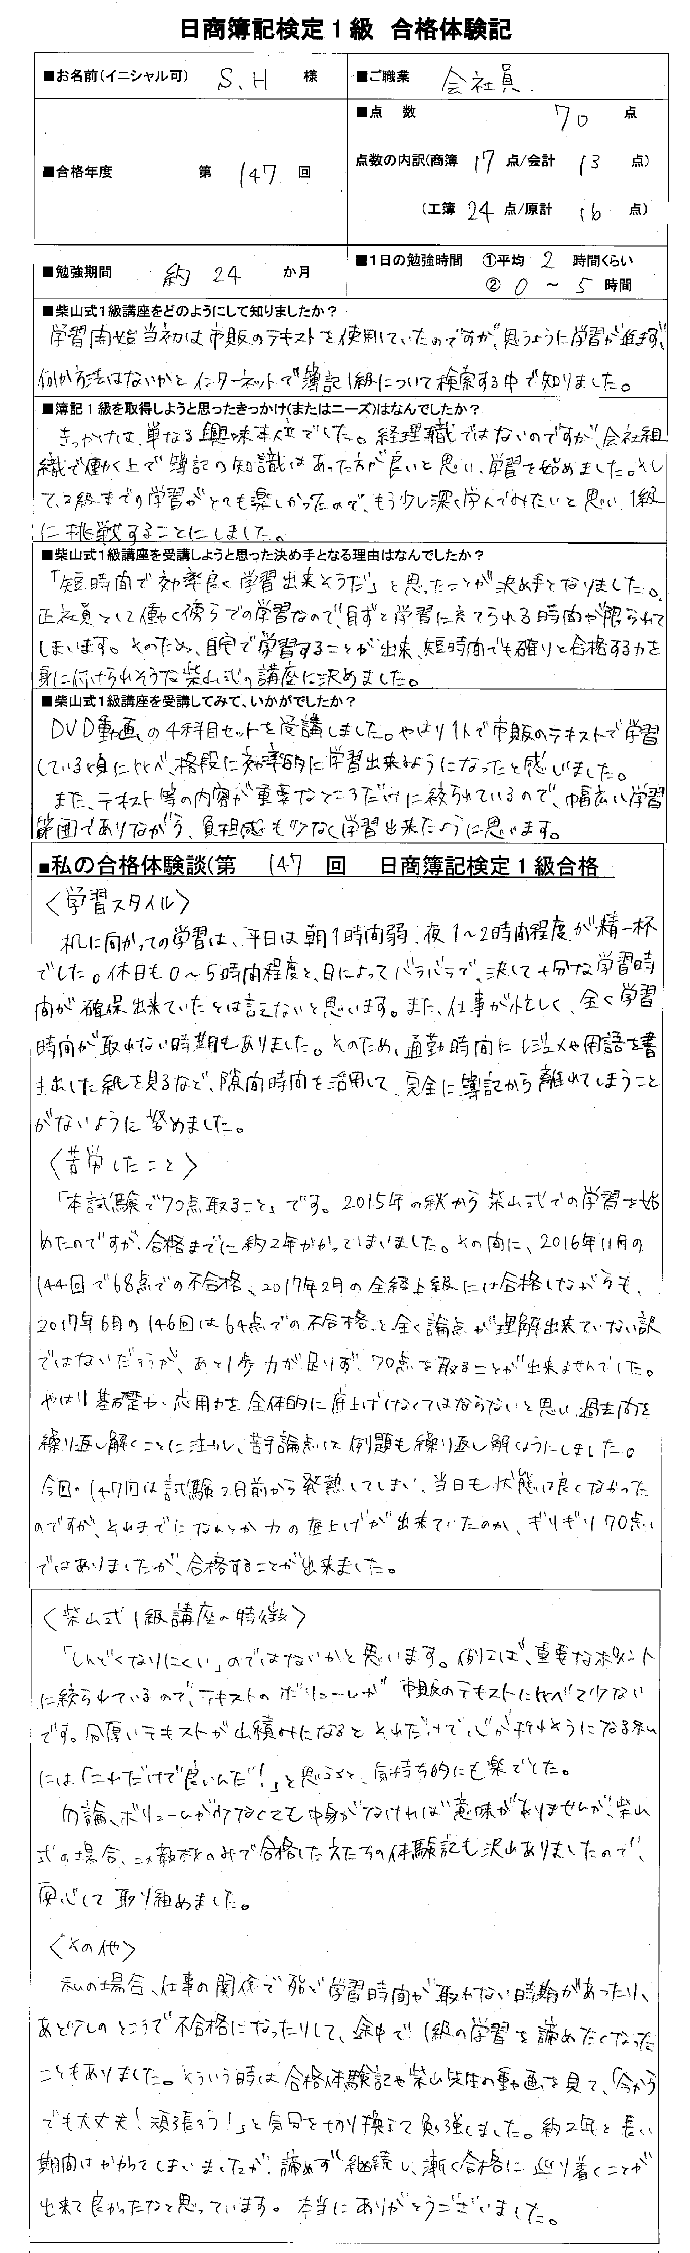 日商簿記検定1級 合格体験記
■お名前(イニシャル可) S.H 様
■ご職業 会社員.
■合格年度 第 147 回
■点 数 70 点
点数の内訳(商簿 17 点/会計 13 点)
(工簿 24 点/原計 16 点)
■勉強期間 約 24 か月
■1日の勉強時間 ①平均 2 時間くらい
② 0 ～ 5 時間
■柴山式1級講座をどのようにして知りましたか？
学習開始当初は市販のテキストを使用していたのですが、思うように学習が進まず、
何か方法はないかとインターネットで簿記1級について検索する中で知りました。
■簿記1級を取得しようと思ったきっかけ(またはニーズ)はなんでしたか？
きっかけは、単なる興味本位でした。経理職ではないのですが、会社組
織で働く上で簿記の知識はあった方が良いと思い、学習を始めました。そし
て、2級までの学習がとても楽しかったので、もう少し深く学んでみたいと思い、1級
に挑戦することにしました。
■柴山式1級講座を受講しようと思った決め手となる理由はなんでしたか？
「短時間で効率良く学習出来そうだ」と思ったことが決め手となりました。
正社員として働く傍らでの学習なので、自ずと学習に充てられる時間が限られて
しまいます。そのため、自宅で学習することが出来、短時間でも確りと合格する力を
身に付けられそうな柴山式の講座に決めました。
■柴山式1級講座を受講してみて、いかがでしたか？
DVD動画の4科目セットを受講しました。やはり1人で市販のテキストで学習
している頃に比べ、格段に効率的に学習出来るようになったと感じました。
また、テキスト等の内容が重要なところだけに絞られているので、幅広い学習
範囲でありながら、負担感も少なく学習出来たように思います。
■私の合格体験談(第 147 回 日商簿記検定1級合格
〈学習スタイル〉
机に向かっての学習は、平日は朝1時間弱、夜1～2時間程度が精一杯
でした。休日も0～5時間程度と、日によってバラバラで、決して十分な学習時
間が確保出来ていたとは言えないと思います。また、仕事が忙しく、全く学習
時間が取れない時期もありました。そのため、通勤時間にレジュメや用語を書
き出した紙を見るなど、隙間時間を活用して、完全に簿記から離れてしまうこと
がないように努めました。
〈苦労したこと〉
「本試験で70点取ること」です。2015年の秋から柴山式での学習を始
めたのですが、合格までに約2年かかってしまいました。その間に、2016年11月の
144回で68点での不合格、2017年2月の全経上級には合格しながらも、
2017年6月の146回は64点での不合格と、全く論点が理解出来ていない訳
ではないだろうが、あと1歩力が足りず、70点を取ることが出来ませんでした。
やはり基礎力・応用力を全体的に底上げしなくてはならないと思い、過去問を
繰り返し解くことに注力し、苦手論点は例題も繰り返し解くようにしました。
今回の147回は試験2日前から発熱してしまい、当日も状態は良くなかった
のですが、それまでになんとか力の底上げが出来ていたのか、ギリギリ70点
ではありましたが、合格することが出来ました。
〈柴山式1級講座の特徴〉
「しんどくなりにくい」のではないかと思います。例えば、重要なポイント
に絞られているので、テキストのボリュームが市販のテキストに比べて少ない
です。分厚いテキストが山積みになるとそれだけで心が折れそうになる私
には「これだけで良いんだ！」と思うと、気持ち的にも楽でした。
勿論、ボリュームが少なくても中身がなければ意味がありませんが、柴山
式の場合、この教材のみで合格した方たちの体験記も沢山ありましたので、
安心して取り組めました。
〈その他〉
私の場合、仕事の関係で殆ど学習時間が取れない時期があったり、
あと少しのところで不合格になったりして、途中で1級の学習を諦めたくなった
こともありました。そういう時は合格体験記や柴山先生の動画を見て、「今から
でも大丈夫！頑張ろう！」と気分を切り換えて勉強しました。約2年と長い
期間はかかってしまいましたが、諦めず継続し、漸く合格に辿り着くことが
出来て良かったなと思っています。本当にありがとうございました。